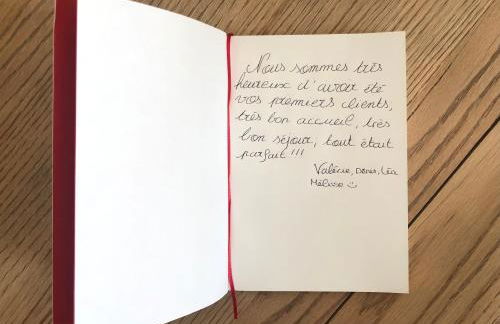 Nous sommes très
heureux d'avoir été
vos premiers clients,
très bon accueil, très
bon séjour, tout était
parfait !!!
Valérie, Denis, Léa
Mélissa